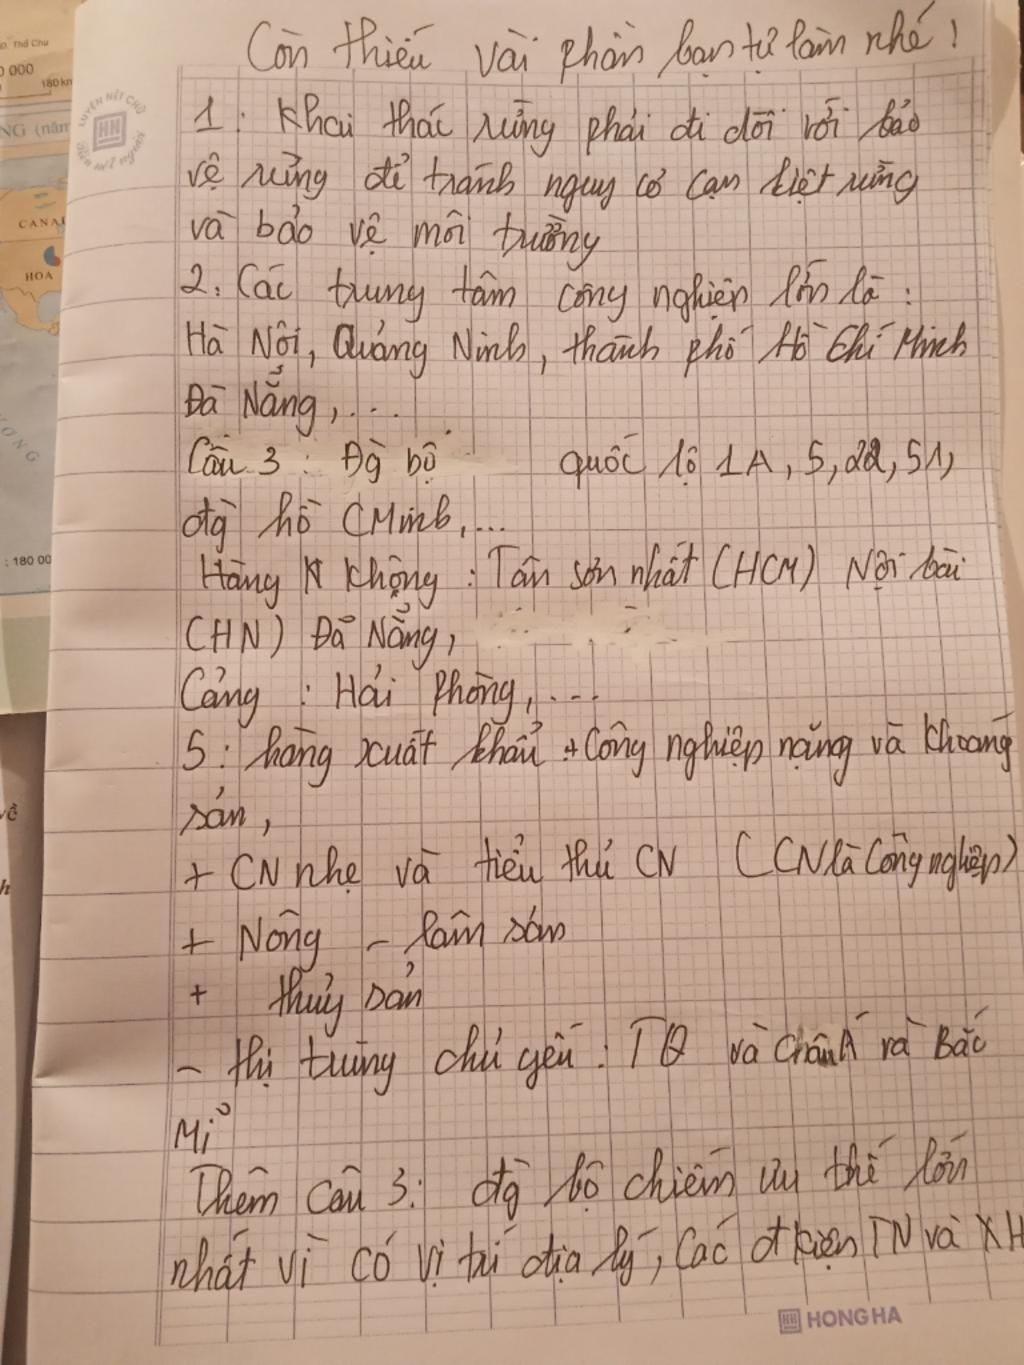 Còn thiếu vài phần bạn tự làm nhé!
1: Khai thác rừng phải đi đôi với bảo
vệ rừng để tránh nguy cơ cạn kiệt rừng
và bảo vệ môi trường
2. Các trung tâm công nghiệp lớn là :
Hà Nội, Quảng Ninh, thành phố Hồ Chí Minh
Đà Nẵng, ...
Câu 3 : Đg bộ quốc lộ 1A, 5, 22, 51,
đg hồ CMinh, ...
Hàng không : Tân sơn nhất (HCM) Nội bài
(HN) Đà Nẵng,
Cảng : Hải Phòng, ...
5 : hàng xuất khẩu + Công nghiệp nặng và khoáng
sản,
+ CN nhẹ và tiểu thủ CN (CN là Công nghiệp)
+ Nông - lâm sản
+ thuỷ sản
- thị trường chủ yếu : TQ và Châu Á và Bắc
Mỉ
Thêm câu 3: đg bộ chiếm ưu thế lớn
nhất vì có vị trí địa lý, các đkiện TN và XH
HONG HA
LUYỆN NÉT CHỮ
HH
o. Thổ Chu
0 000
180 km
NG (năm
CANA
HOA
: 180 00
về
h